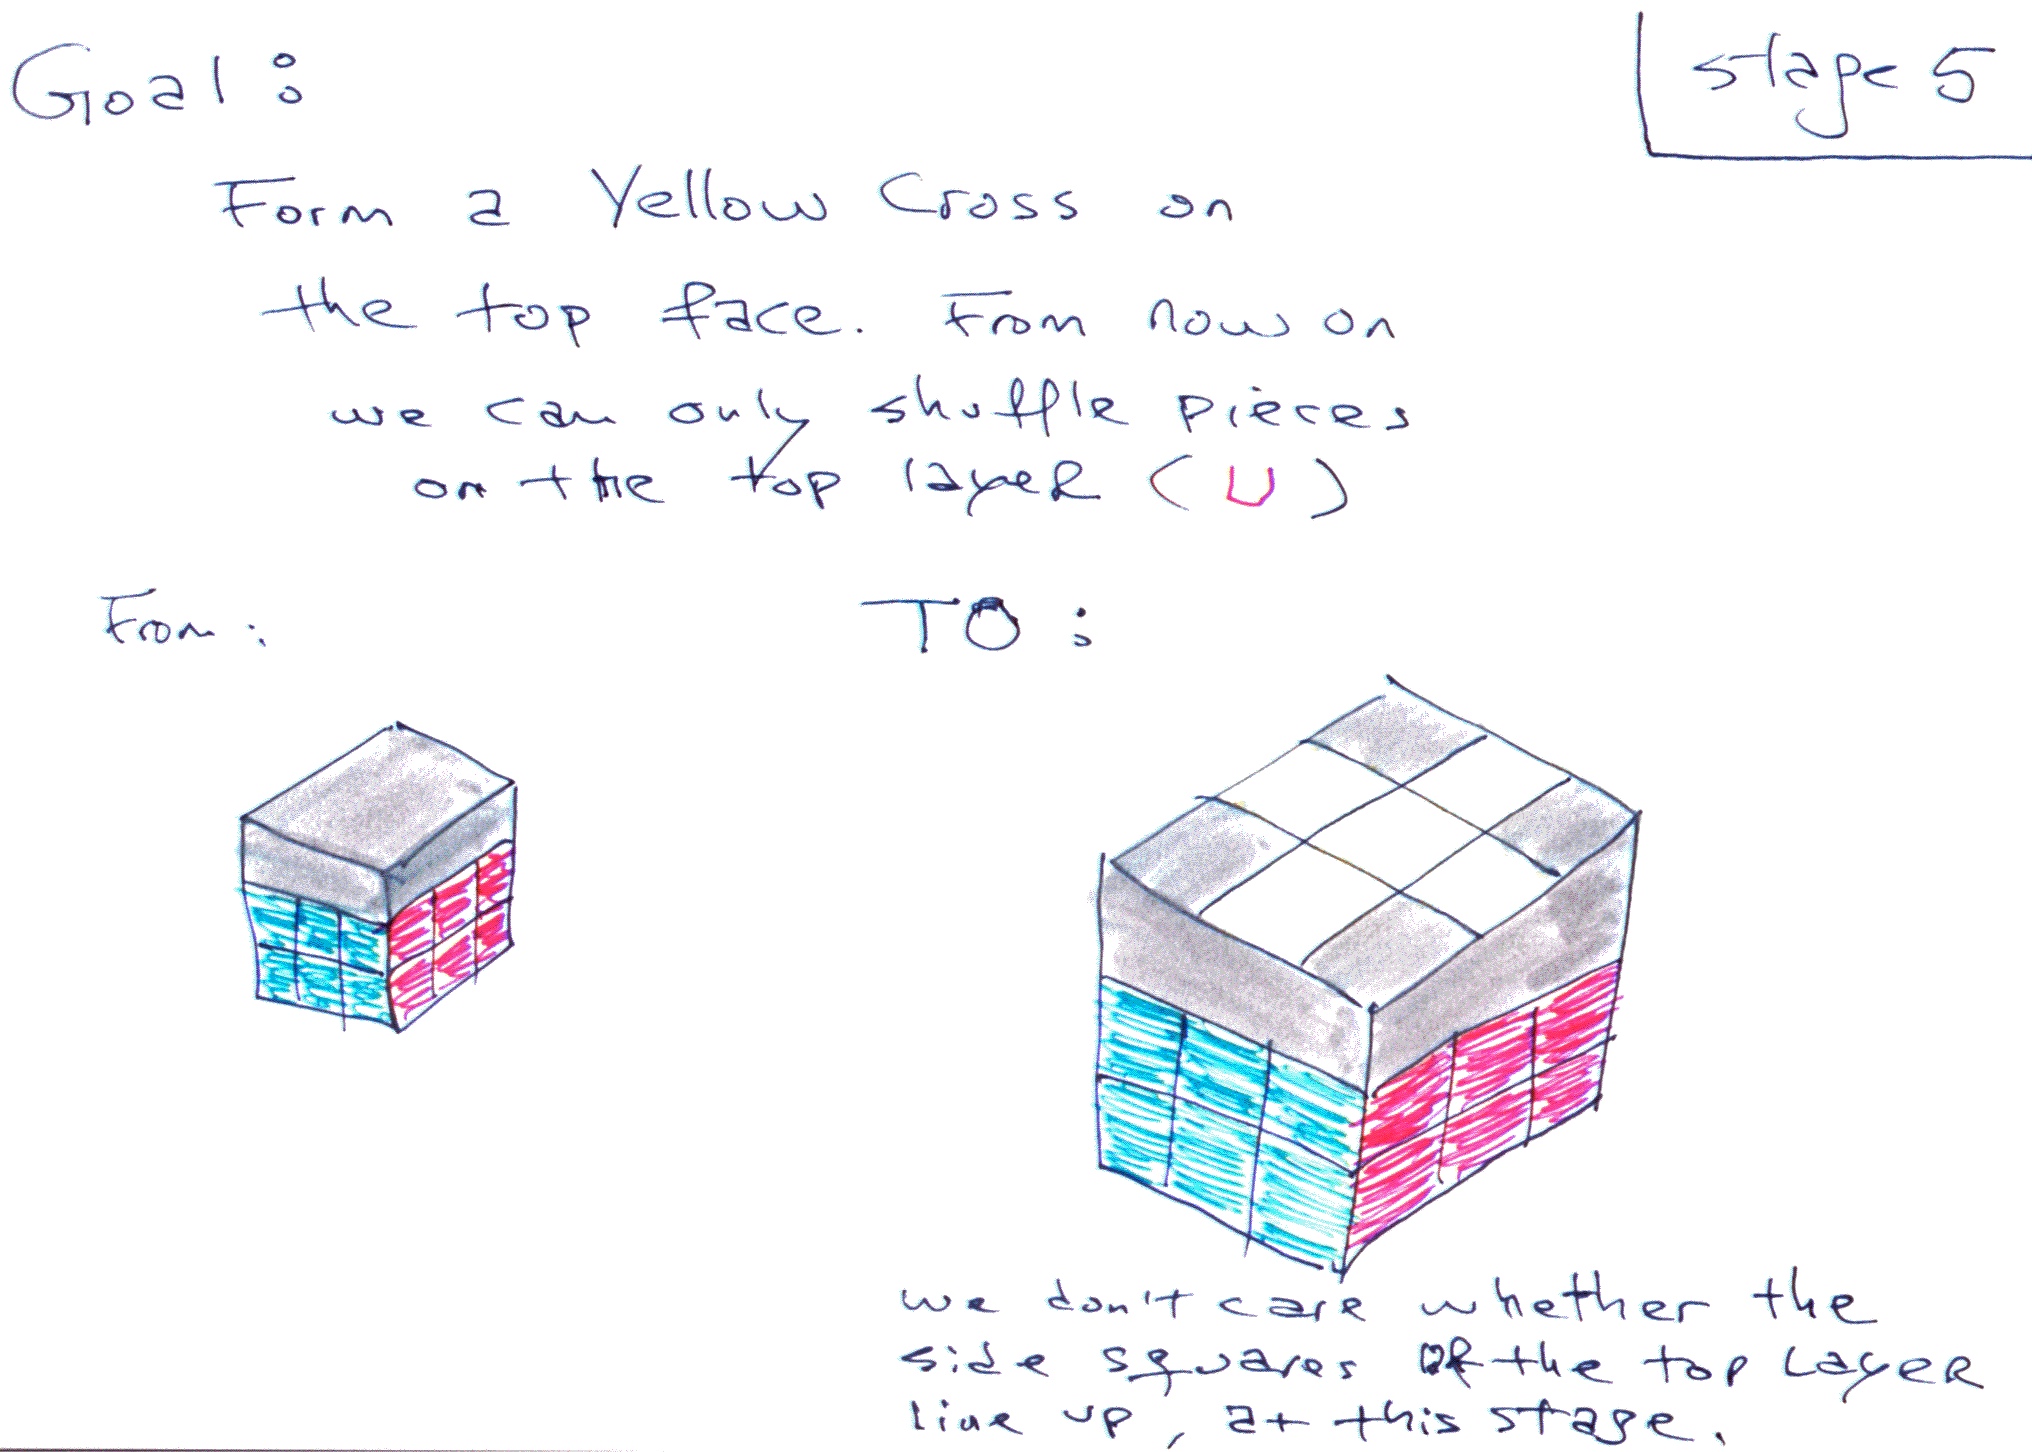 Goal:
stage 5
Form a Yellow Cross on
the top face. From now on
we can only shuffle pieces
on the top layer (U)
From:
TO:
we don't care whether the
side squares of the top Layer
line up, at this stage.